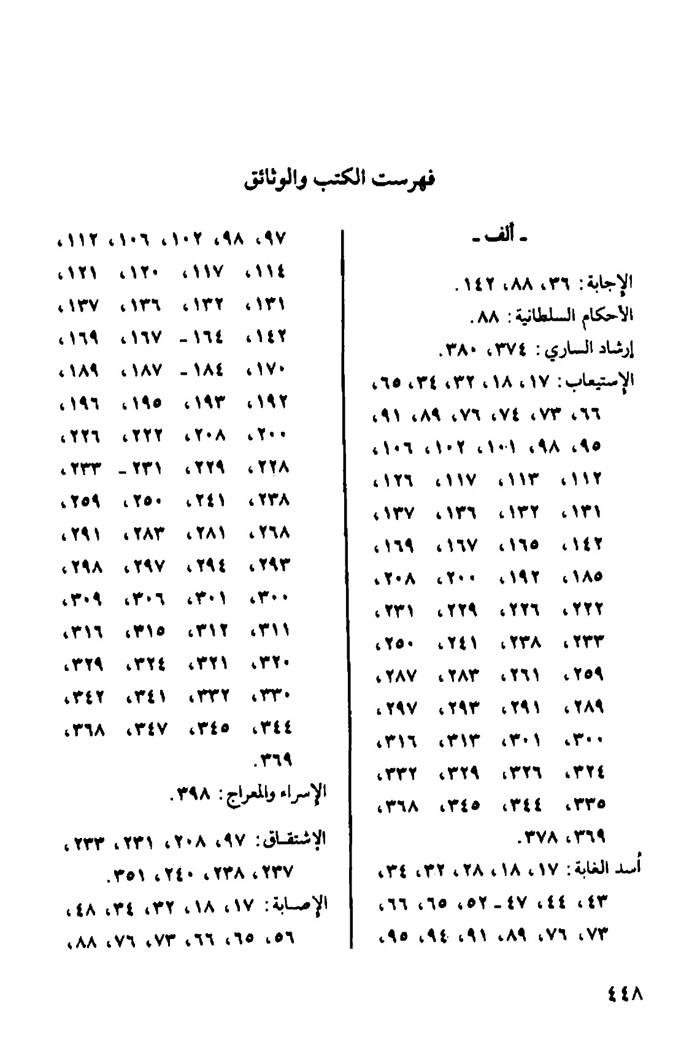 فهرست الكتب والوثائق
ـ ألف ـ
الإجابة: ٣٦، ٨٨، ١٤٢.
الأحكام السلطانية: ٨٨.
إرشاد الساري: ٣٧٤، ٣٨٠.
الإستيعاب: ١٧، ١٨، ٣٢، ٣٤، ٦٥،
٦٦، ٧٣، ٧٤، ٧٦، ٨٩، ٩١،
٩٥، ٩٨، ١٠١، ١٠٢، ١٠٦،
١١٢، ١١٣، ١١٧، ١٢٦،
١٣١، ١٣٢، ١٣٦، ١٣٧،
١٤٢، ١٦٥، ١٦٧، ١٦٩،
١٨٥، ١٩٢، ٢٠٠، ٢٠٨،
٢٢٢، ٢٢٦، ٢٢٩، ٢٣١،
٢٣٣، ٢٣٨، ٢٤١، ٢٥٠،
٢٥٩، ٢٦١، ٢٨٣، ٢٨٧،
٢٨٩، ٢٩١، ٢٩٣، ٢٩٧،
٣٠٠، ٣٠١، ٣١٣، ٣١٦،
٣٢٤، ٣٢٦، ٣٢٩، ٣٣٢،
٣٣٥، ٣٤٤، ٣٤٥، ٣٦٨،
٣٦٩، ٣٧٨.
أسد الغابة: ١٧، ١٨، ٢٨، ٣٢، ٣٤،
٤٣، ٤٤، ٤٧ـ ٥٢، ٦٥، ٦٦،
٧٣، ٧٦، ٨٩، ٩١، ٩٤، ٩٥،
٩٧، ٩٨، ١٠٢، ١٠٦، ١١٢،
١١٤، ١١٧، ١٢٠، ١٢١،
١٣١، ١٣٢، ١٣٦، ١٣٧،
١٤٢، ١٦٤ـ ١٦٧، ١٦٩،
١٧٠، ١٨٤ـ ١٨٧، ١٨٩،
١٩٢، ١٩٣، ١٩٥، ١٩٦،
٢٠٠، ٢٠٨، ٢٢٢، ٢٢٦،
٢٢٨، ٢٢٩، ٢٣١ـ ٢٣٣،
٢٣٨، ٢٤١، ٢٥٠، ٢٥٩،
٢٦٨، ٢٨١، ٢٨٣، ٢٩١،
٢٩٣، ٢٩٤، ٢٩٧، ٢٩٨،
٣٠٠، ٣٠١، ٣٠٦، ٣٠٩،
٣١١، ٣١٢، ٣١٥، ٣١٦،
٣٢٠، ٣٢١، ٣٢٤، ٣٢٩،
٣٣٠، ٣٣٢، ٣٤١، ٣٤٢،
٣٤٤، ٣٤٥، ٣٤٧، ٣٦٨،
٣٦٩.
الإسراء والمعراج: ٣٩٨.
الإشتقاق: ٩٧، ٢٠٨، ٢٣١، ٢٣٣،
٢٣٧، ٢٣٨، ٢٤٠، ٣٥١.
الإصابة: ١٧، ١٨، ٣٢، ٣٤، ٤٨،
٥٦، ٦٥، ٦٦، ٧٣، ٧٦، ٨٨،
٤٤٨